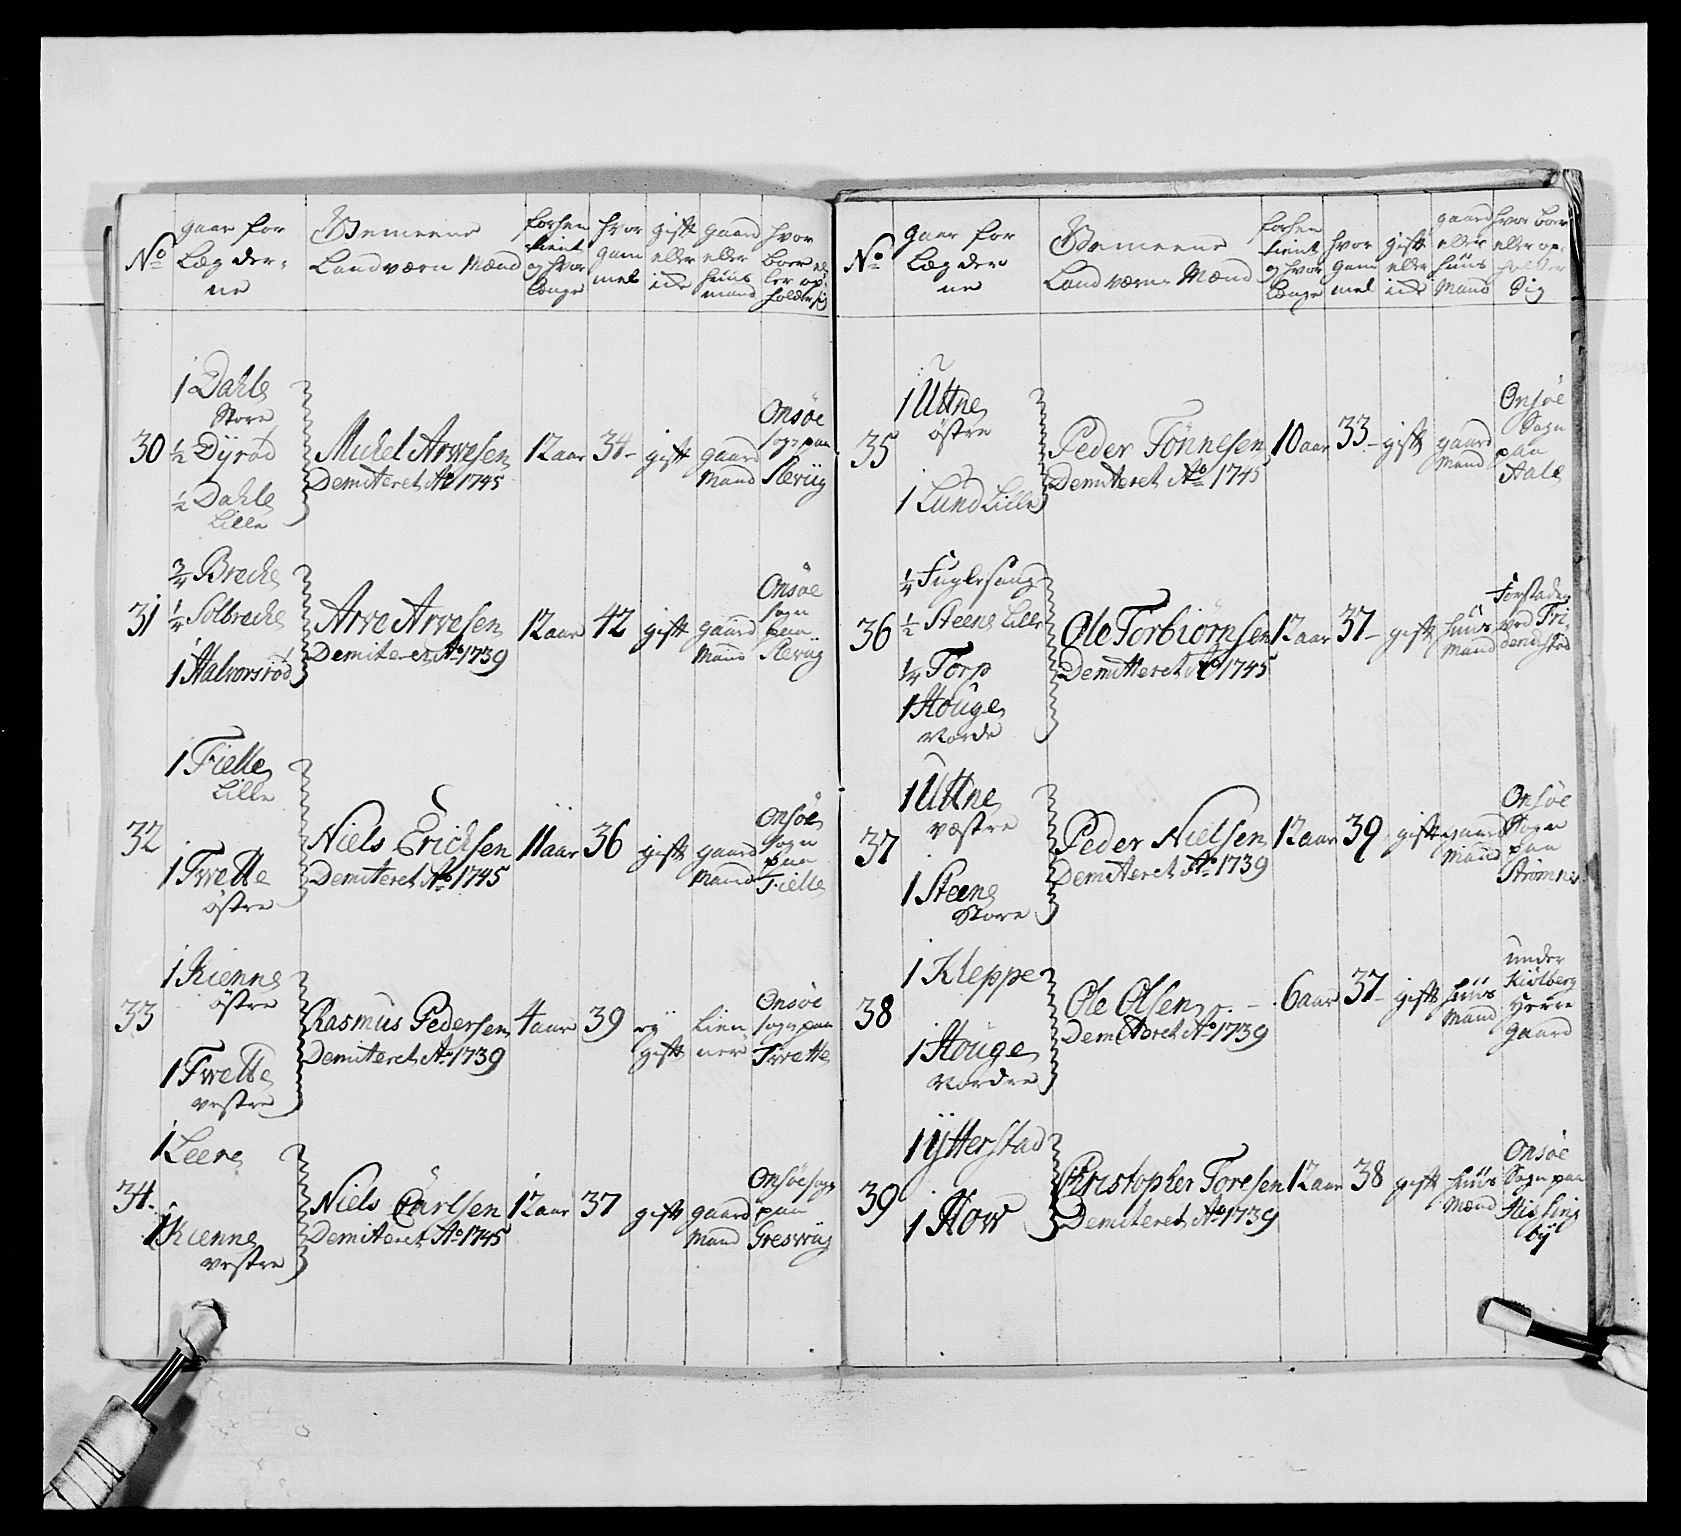 No
gaar for
Lægder-
ne
Gemeene
Landværn Mænd
forhen
tient
og hvor
længe
hvor
gam
mel
gift
eller
ide
gaard
eller
huus
mand
hvor
boer el
ler op-
holder sig
30
1 Dahle
Store
1/2 Dÿrød
1/2 Dahle
Lille
Michel Arvesen
Demitteret Ao 1745
12 aar
34-
gift
gaard
Mand
Onsøe
sogn paa
Slevüg
31
3/4 Brecke
1/4 Solbrecke
1 Halvorsrød
Arve Arvesen
Demitteret Ao 1739
12 aar
42
gift
gaard
Mand
Onsøe
sogn
paa
Slevüg
32
1 Fielle
Lille
1 Tvette
østre
Niels Ericksen
Demitteret Ao 1745
11 aar
36
gift
gaard
Mand
Onsøe
Sogn
paa
Fielle
33
1 Kienne
østre
1 Tvette
vestre
Rasmus Pedersen
Demitteret Ao 1739
4 aar
39
gift
Onsøe
sogn paa
Tvette
34.
1 Leere
1 Kienne
vestre
Niels Carlsen
Demitteret Ao 1745
12 aar
37
gift
gaard
Mand
Onsøe sogn
paa
Gresvüg
No
gaar for
Læg der
ne
Gemeene
Landværns Mænd
forhen
tient
og hvor
længe
hvor
gam
mel
gift
eller
ide
gaard
eller
huus
Mand
hvor boer
eller op-
holder
Sig
35
1 Uttne
østre
1 Lund Lille
Peder Tönnesen
Demitteret Ao 1745
10 aar
33-
gift
gaard
Mand
Onsøe
Sogn
paa
Aale
36
1/4 Fuglesang
1/2 Steene Lille
1/4 Torp
1 Houge
Norde
Ole Torbiörnsen
Demitteret Ao 1745
12 aar
37-
gift
huus
Mand
Forstaden
ved Fri-
derichstad
37
1 Uttne
væstre
1 Steene
Store
Peder Nielsen
Demitteret Ao 1739
12 aar
39
gift
gaard
Mand
Onsøe
Sogn
paa
Strømnes
38
1 Kleppe
1 Houge
Nordre
Ole Olsen
Demitteret Ao 1739
6 aar
37-
gift
huus
Mand
under
Kiølberg
Herre
gaard
39
1 ÿtterstad
1 How
Christopher Toresen
Demiteret Ao 1739
12 aar
38
gift
huus
Mænd
Onsøe
Sogn paa
bÿ